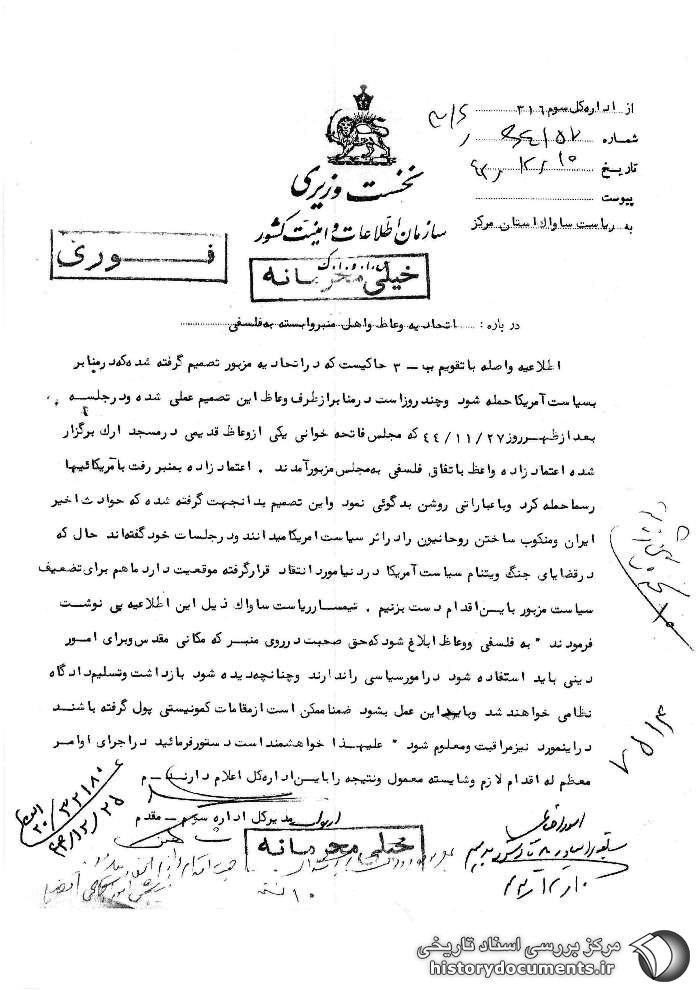 از اداره کل سوم ۳۱۶
شماره
تاریخ
پیوست
به ریاست ساواک استان مرکز
نخست وزیری
سازمان اطلاعات و امنیت کشور
س.ا.و.ا.ک
فوری
خیلی محرمانه
درباره : اتحادیه وعاظ واهل منبر وابسته به فلسفی
اطلاعیه واصله با تقویم ب ـ ۳ حاکیست که در اتحادیه مزبور تصمیم گرفته شده که در منابر
بسیاست آمریکا حمله شود وچند روز است در منابر از طرف وعاظ این تصمیم عملی شده ودر جلسه
بعد از ظهر روز ۴۴/۱۱/۲۷ که مجلس فاتحه خوانی یکی از وعاظ قدیمی در مسجد ارك برگزار
شده اعتماد زاده واعظ باتفاق فلسفی به مجلس مزبور آمدند . اعتماد زاده بمنبر رفت بآمریکائیها
رسما حمله کرد وبا عباراتی روشن بدگوئی نمود واین تصمیم بدانجهت گرفته شده که حوادث اخیر
ایران ومنکوب ساختن روحانیون را در اثر سیاست امریکا میدانند ودر جلسات خود گفته‌اند حال که
در قضایای جنگ ویتنام سیاست آمریکا در دنیا مورد انتقاد قرار گرفته موقعیت دارد ما هم برای تضعیف
سیاست مزبور باین اقدام دست بزنیم . تیمسار ریاست ساواك ذیل این اطلاعیه پی نوشت
فرمودند " به فلسفی ووعاظ ابلاغ شود که حق صحبت در روی منبر که مکانی مقدس وبرای امور
دینی باید استفاده شود در امور سیاسی را ندارند وچنانچه دیده شود بازداشت وتسلیم دادگاه
نظامی خواهند شد وباید این عمل بشود ضمنا ممکن است از مقامات کمونیستی پول گرفته باشند
در اینمورد نیز مراقبت ومعلوم شود " علیهذا خواهشمند است دستور فرمائید در اجرای اوامر
معظم له اقدام لازم وشایسته معمول ونتیجه را باین اداره کل اعلام دارند ـ م
مدیر کل اداره سوم ـ مقدم
خیلی محرمانه
۳۲۱۸۰/
۴۴/۱۲/۲۵
۷۵۱۴
مرکز بررسی اسناد تاریخی
historydocuments.ir